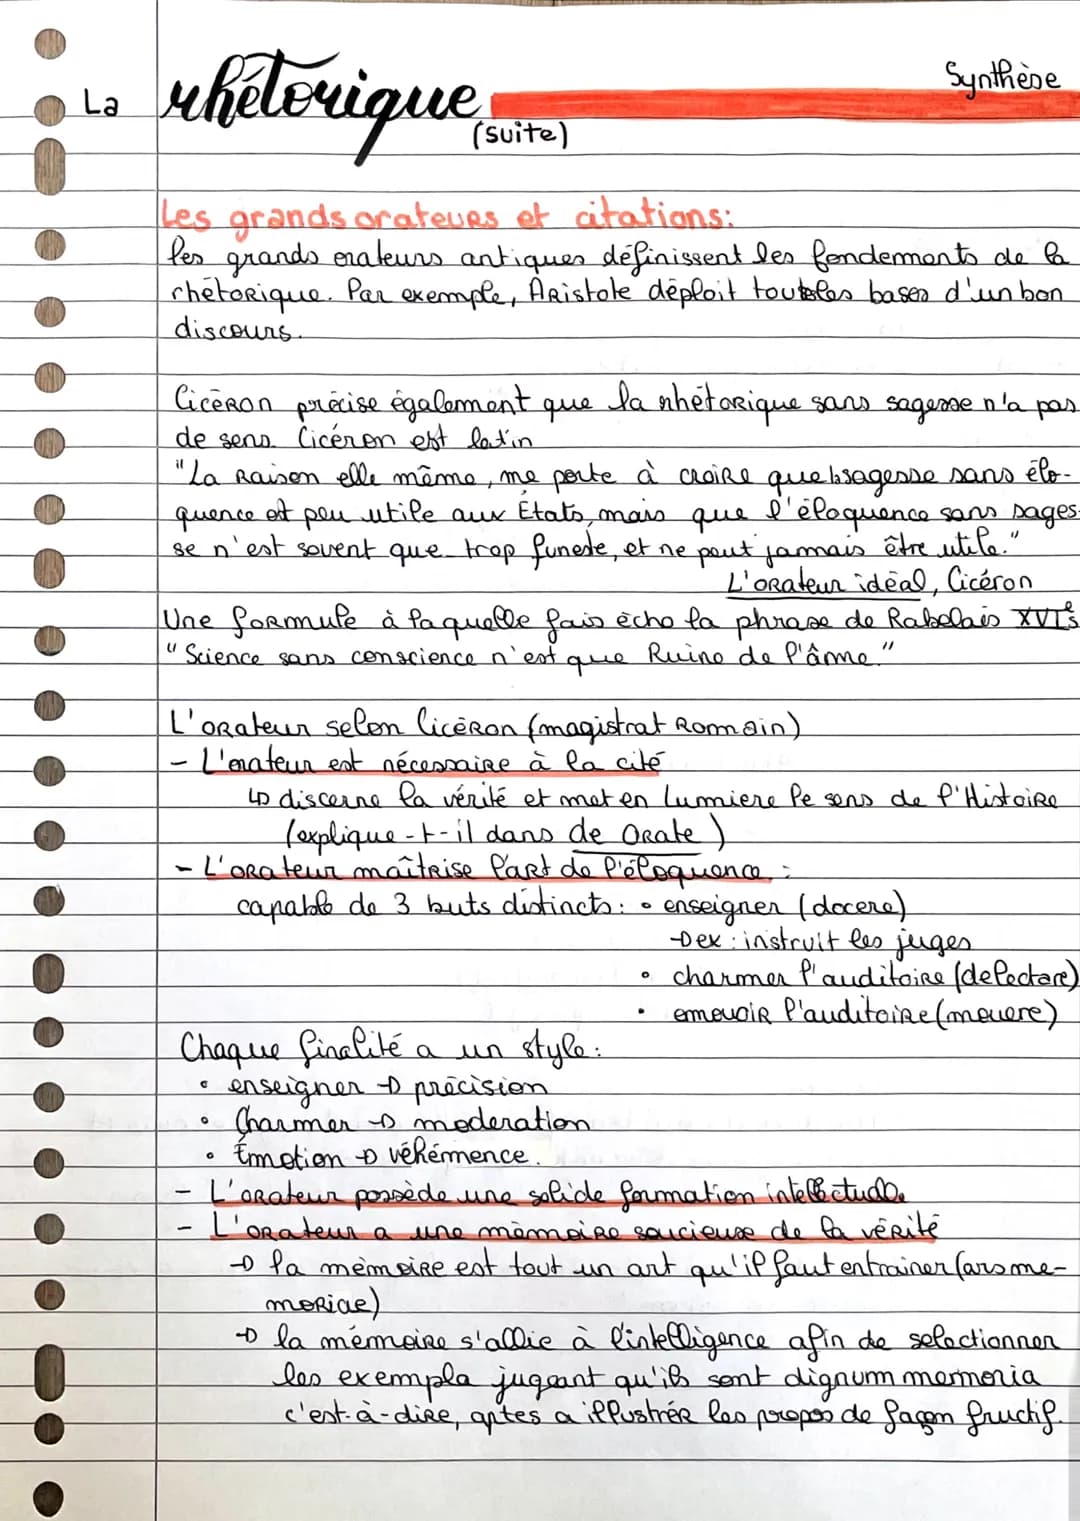 La rhétorique (suite)
Synthèse
Les grands orateurs et citations:
Les grands orateurs antiques définissent les fondements de la
rhétorique. Par exemple, Aristote déploit toutes les bases d'un bon
discours.
Cicéron précise également que la rhétorique sans sagesse n'a pas
de sens. Cicéron est latin
"La Raison elle même, me porte à croire que la sagesse sans élo-
quence est peu utile aux États, mais que l'éloquence sans sages-
se n'est sovent que trop funeste, et ne peut jamais être utile."
L'orateur idéal, Cicéron
Une formule à laquelle fais écho la phrase de Rabelais XVIe s
"Science sans conscience n'est que Ruine de l'âme."
L'orateur selon Cicéron (magistrat Romain)
- L'orateur est nécessaire à la cité
↳ discerne la vérité et met en lumiere le sens de l'Histoire
(explique-t-il dans de Orate)
- L'orateur maîtrise l'art de l'éloquence :
capable de 3 buts distincts: • enseigner (docere)
→ ex : instruit les juges
• charmer l'auditoire (delectare)
• emouvoir l'auditoire (movere)
Chaque finalité a un style:
• enseigner → précision
• Charmer → moderation
• Émotion → véhémence.
- L'orateur possède une solide formation intellectuelle
- L'orateur a une mémoire soucieuse de la vérité
→ la mémoire est tout un art qu'il faut entrainer (ars me-
moriae)
→ la mémoire s'allie à l'intelligence afin de selectionner
les exempla jugeant qu'ils sont dignum memoria
c'est-à-dire, aptes a illustrér les propos de façon fructif.